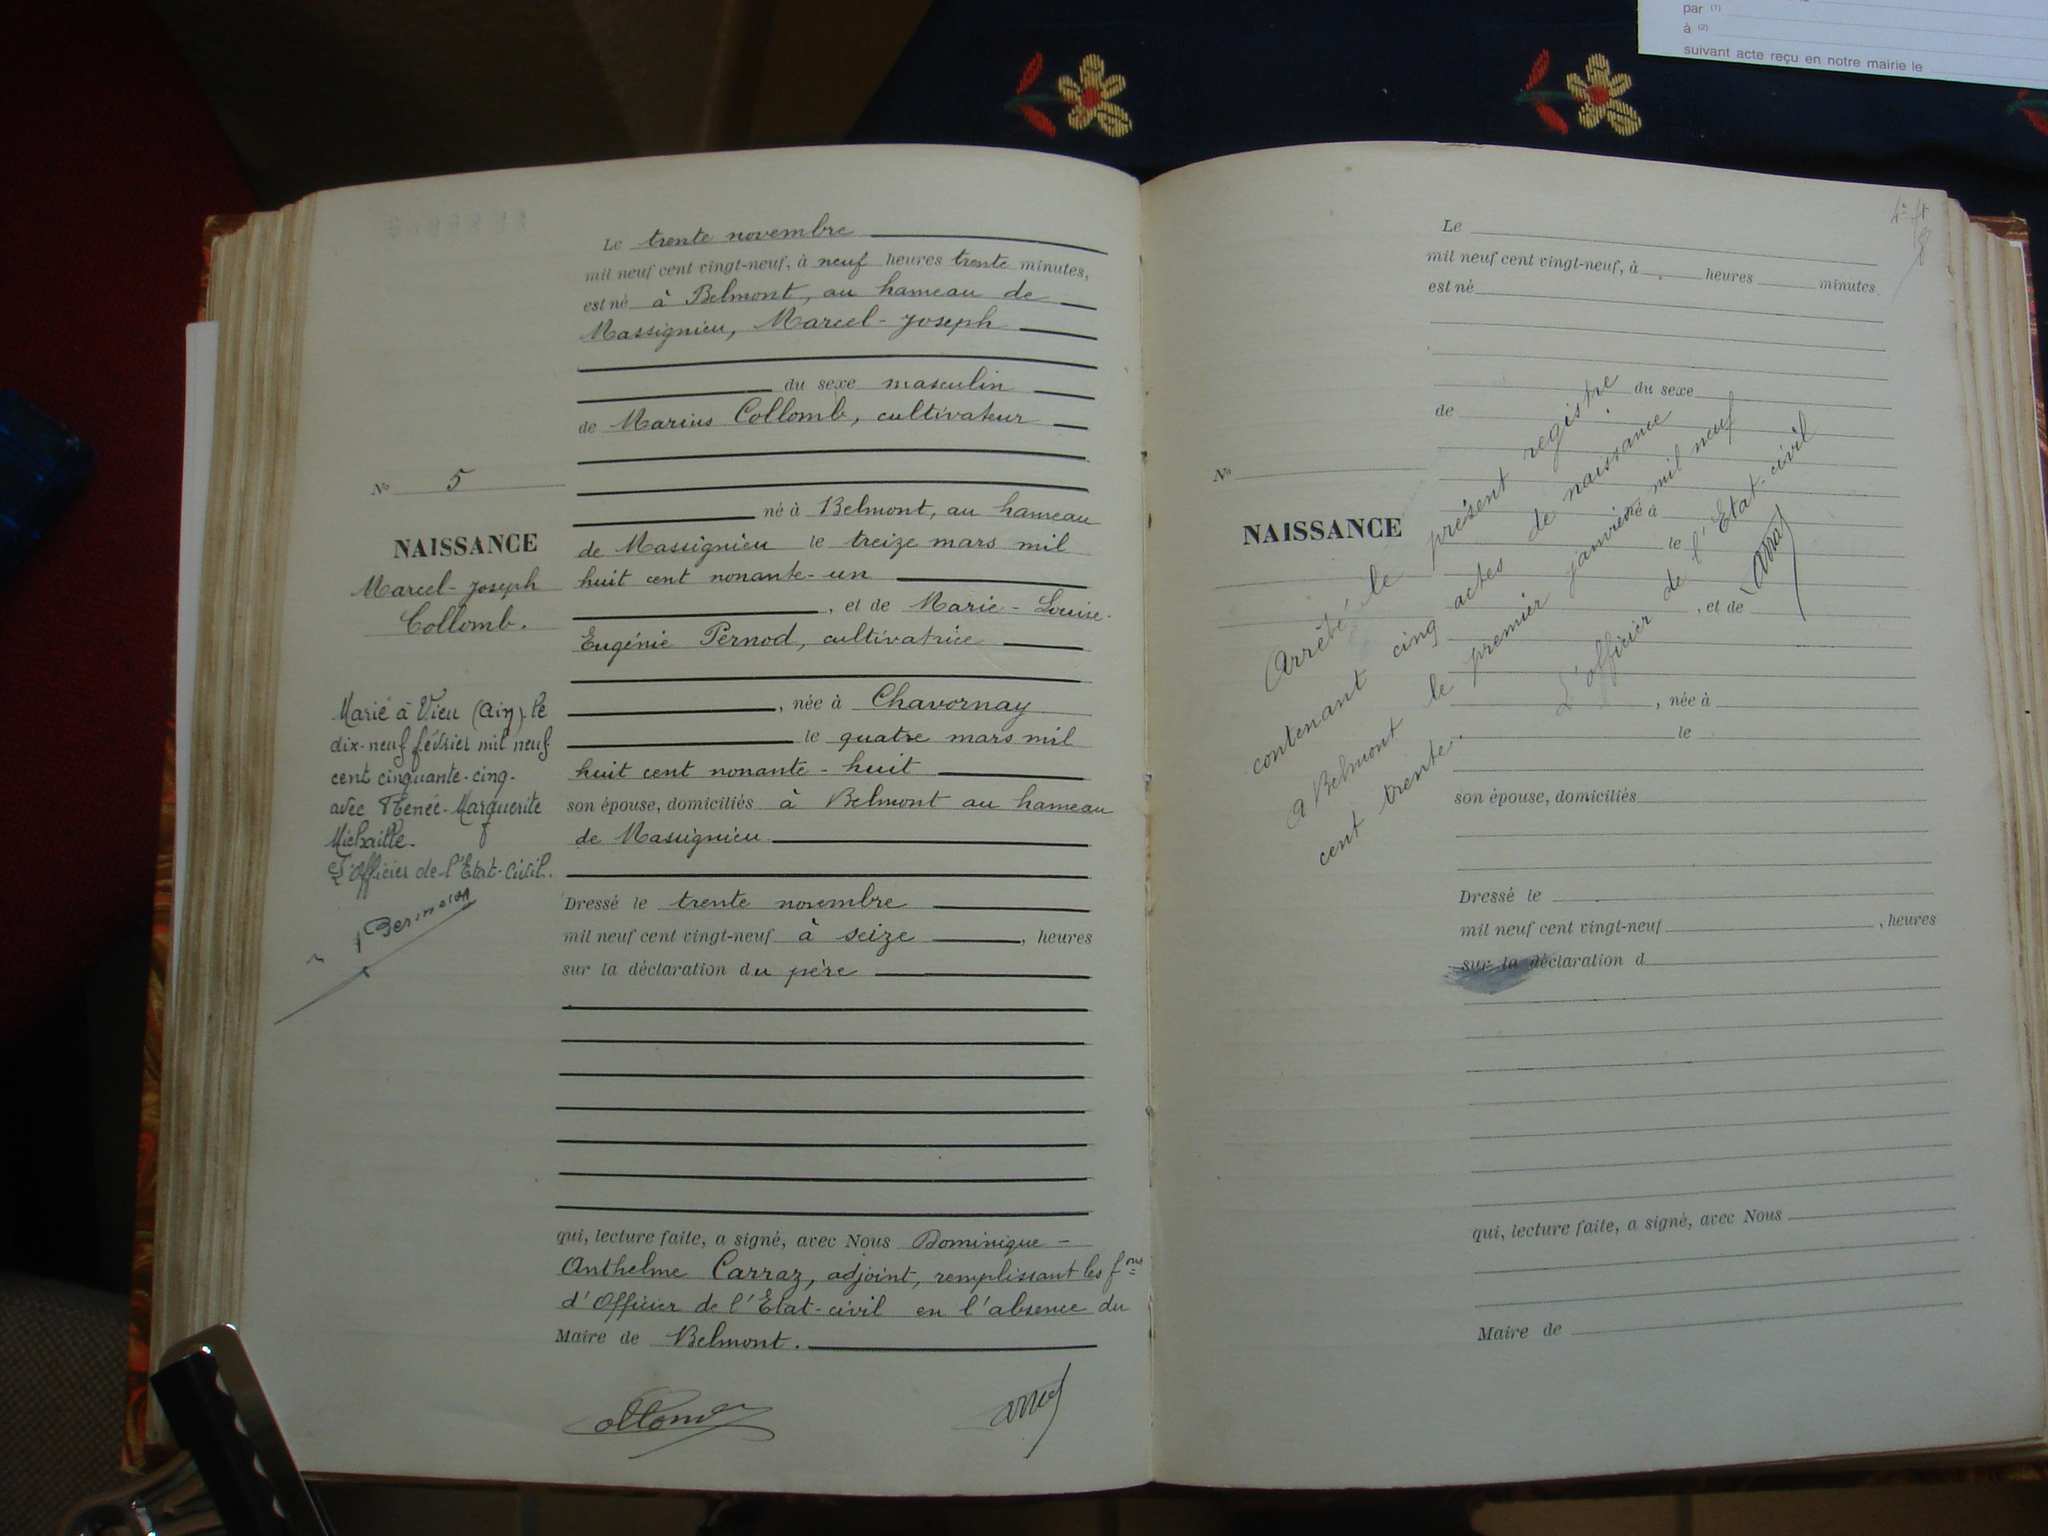 par (1)
à (2)
suivant acte reçu en notre mairie le
Le trente novembre
mil neuf cent vingt-neuf, à neuf heures trente minutes,
est né à Belmont, au hameau de
Massignieu, Marcel-Joseph
du sexe masculin
de Marius Collomb, cultivateur
né à Belmont, au hameau
de Massignieu le treize mars mil
huit cent nonante-un
, et de Marie-Louise-
Eugénie Pernod, cultivatrice
, née à Chavornay
le quatre mars mil
huit cent nonante-huit
son épouse, domiciliés à Belmont au hameau
de Massignieu
Dressé le trente novembre
mil neuf cent vingt-neuf à seize , heures
sur la déclaration du père
qui, lecture faite, a signé, avec Nous Dominique-
Anthelme Carraz, adjoint, remplissant les fons
d'Officier de l'Etat-civil en l'absence du
Maire de Belmont.
No 5
NAISSANCE
Marcel-Joseph
Collomb.
Marié à Vieu (Ain) le
dix-neuf février mil neuf
cent cinquante-cinq
avec Renée-Marguerite
Michaille.
L'Officier de l'Etat-Civil.
Le
mil neuf cent vingt-neuf, à heures minutes
est né
du sexe
de
No
NAISSANCE
né à
le
, et de
, née à
le
son épouse, domiciliés
Dressé le
mil neuf cent vingt-neuf , heures
sur la déclaration d
qui, lecture faite, a signé, avec Nous
Maire de
Arrêté le présent registre
contenant cinq actes de naissance
A Belmont le premier janvier mil neuf
cent trente.
L'officier de l'Etat-civil